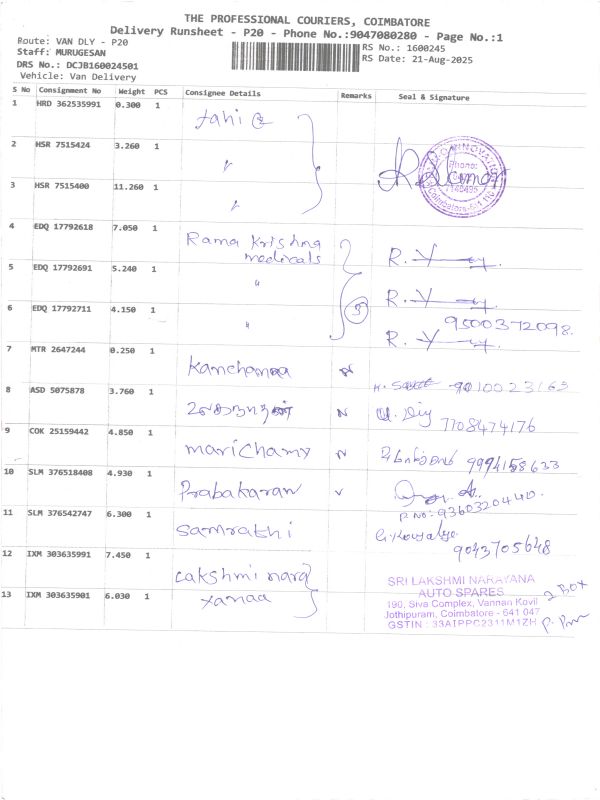 THE PROFESSIONAL COURIERS, COIMBATORE
Delivery Runsheet - P20 - Phone No.:9047080280 - Page No.:1
Route: VAN DLY - P20
Staff: MURUGESAN
DRS No.: DCJB160024501
Vehicle: Van Delivery
RS No.: 1600245
RS Date: 21-Aug-2025
S No Consignment No Weight PCS Consignee Details Remarks Seal & Signature
1 HRD 362535991 0.300 1
2 HSR 7515424 3.260 1 "
3 HSR 7515400 11.260 1 "
Phone:
Coimbatore-
4 EDQ 17792618 7.050 1 Rama Krishna
medicals
5 EDQ 17792691 5.240 1 "
6 EDQ 17792711 4.150 1 " 3 95003 72098.
7 MTR 2647244 0.250 1
8 ASD 5075878 3.760 1 7708474176
9 COK 25159442 4.850 1 marichamy
10 SLM 376518408 4.930 1 Prabakaran
P.No: 9360320440.
11 SLM 376542747 6.300 1 Samrathi
9043705648
12 IXM 303635991 7.450 1 Lakshmi nara
13 IXM 303635901 6.030 1 yanaa
SRI LAKSHMI NARAYANA
AUTO SPARES
190, Siva Complex, Vannan Kovil
Jothipuram, Coimbatore - 641 047
GSTIN : 33AIPPC2311M1ZH
2 BOX